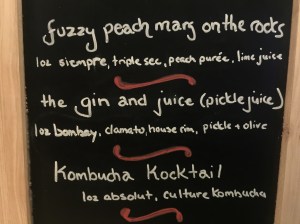 fuzzy peach marg on the rocks
1oz siempre, triple sec, peach purée, lime juice
the gin and juice (pickle juice)
1oz bombay, clamato, house rim, pickle + olive
Kombucha Kocktail
1oz absolut, culture kombucha